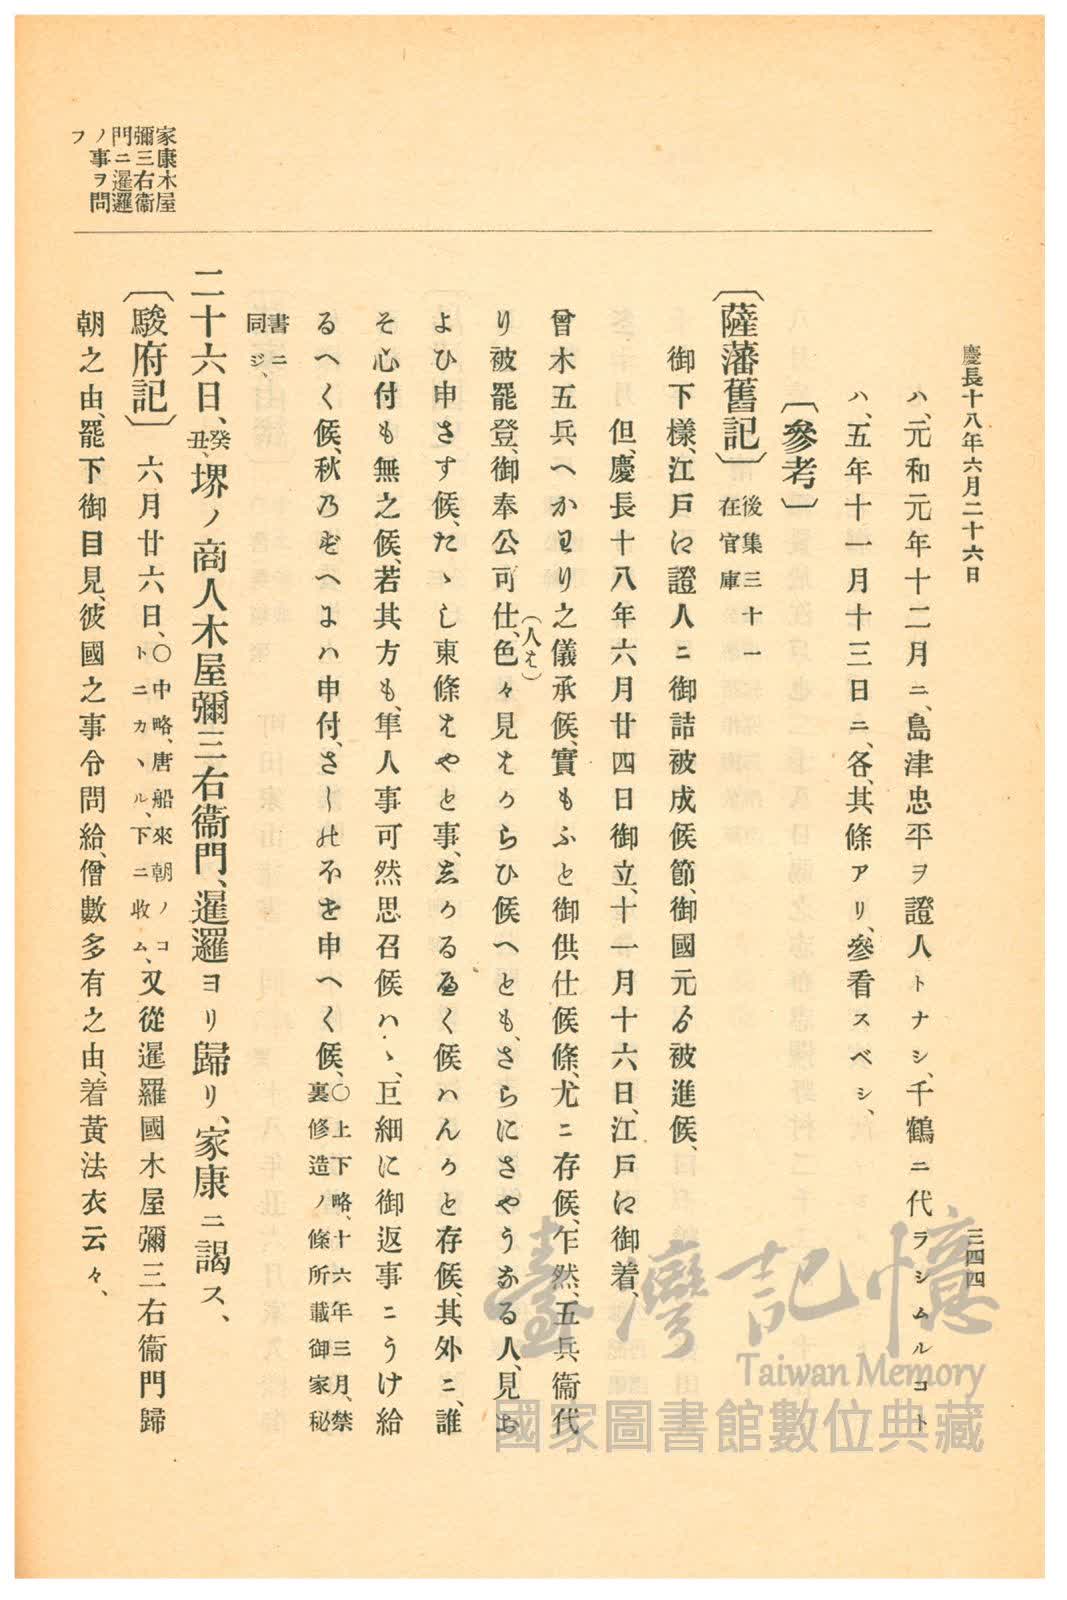 慶長十八年六月二十六日
三四四
ハ、元和元年十二月ニ、島津忠平ヲ證人トナシ、千鶴ニ代ヲシムルコト
ハ、五年十一月十三日ニ、各、其條アリ、參看スベシ、
〔參考〕
〔薩藩舊記〕後集三十一在官庫
御下樣、江戸に證人ニ御詰被成候節、御國元ゟ被進候、
但、慶長十八年六月廿四日御立、十一月十六日、江戸に御着、
曾木五兵へかわり之儀承候、實もふと御供仕候條、尤ニ存候、乍然、五兵衞代
り被罷登、御奉公可仕、色々見えからひ候へとも、さらにさやうなる人、見お
(人え)
よひ申さす候、たゝし東條えやと事、志かるへく候ハんかと存候、其外ニ、誰
そ心付も無之候、若其方も、隼人事可然思召候ハヽ、巨細に御返事ニうけ給
るへく候、秋乃ぞへよハ申付、さしのほせ申へく候、○上下略、十六年三月、禁裏修造ノ條所載御家秘
書ニ同ジ、
二十六日、癸丑、堺ノ商人木屋彌三右衞門、暹邏ヨリ歸リ、家康ニ謁ス、
〔駿府記〕六月廿六日、○中略、唐船來朝ノコトニカヽル、下ニ收ム、又從暹羅國木屋彌三右衞門歸
朝之由、罷下御目見、彼國之事令問給、僧數多有之由、着黃法衣云々、
家康木屋
彌三右衞
門ニ暹邏
ノ事ヲ問
フ
臺灣記憶
Taiwan Memory
國家圖書館數位典藏